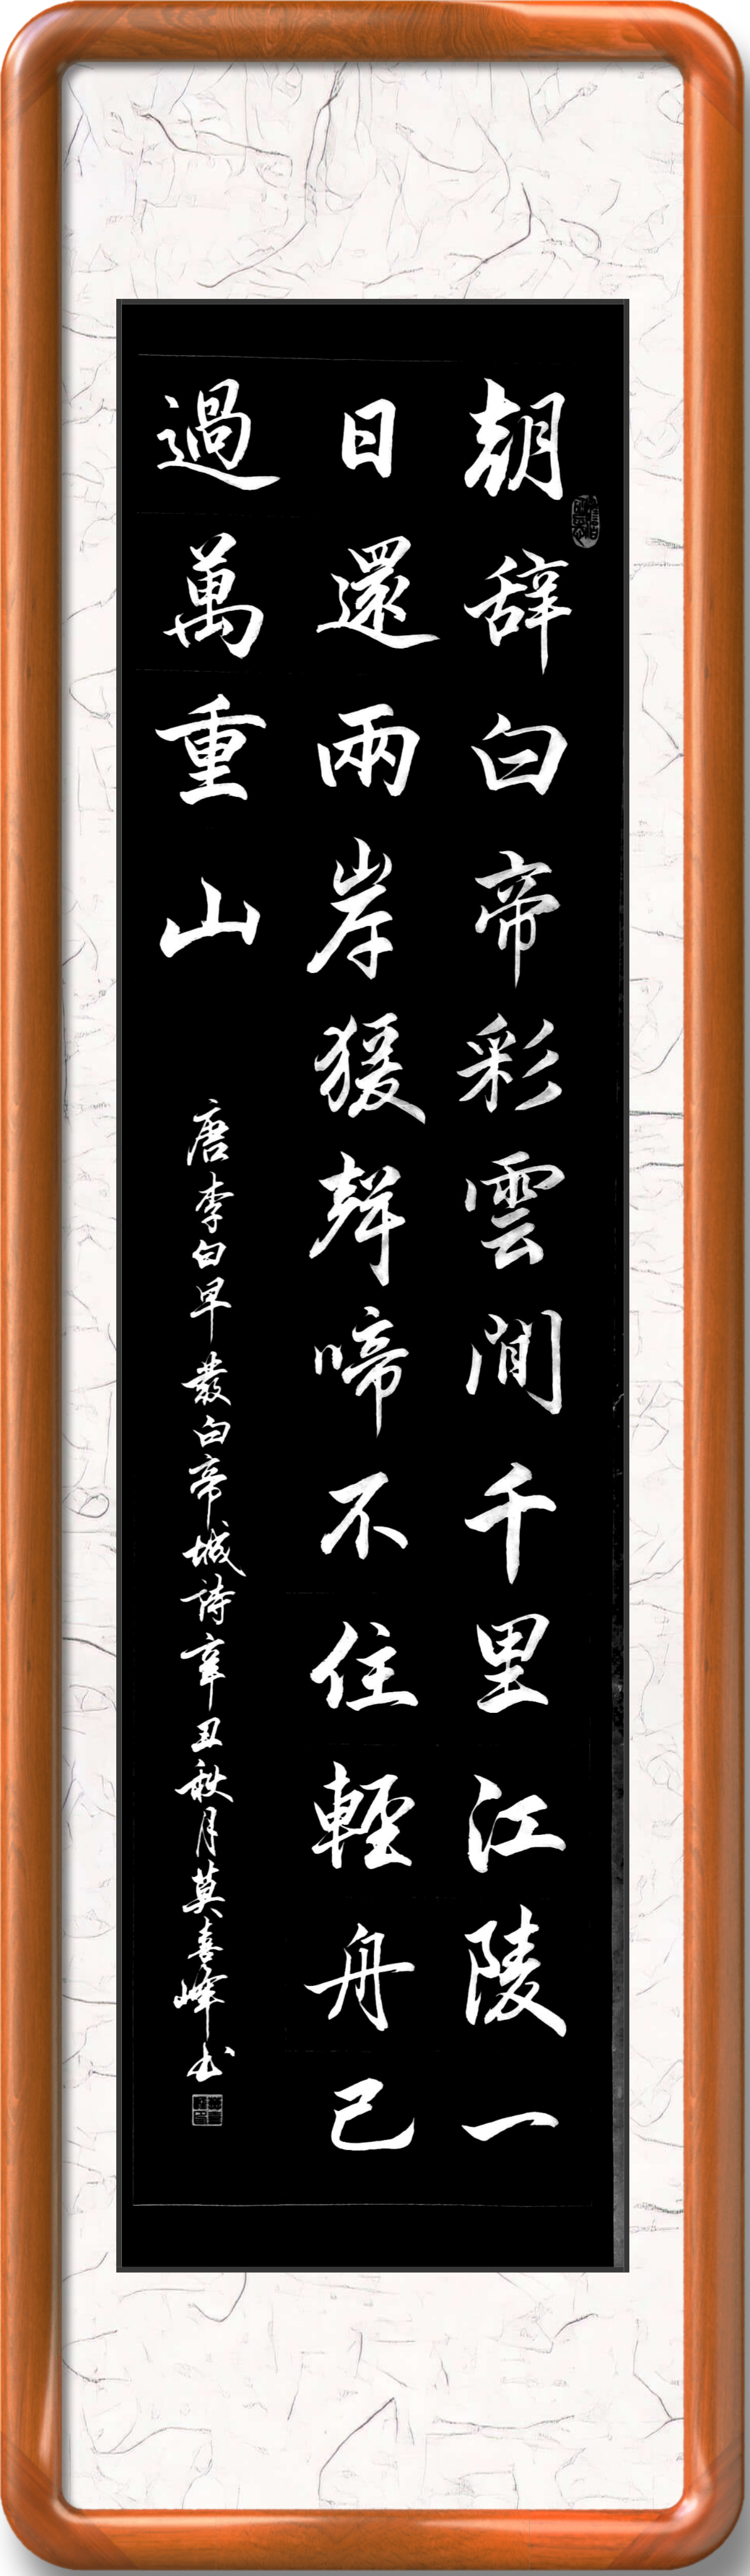 朝辞白帝彩雲間千里江陵一
日還兩岸猨聲啼不住輕舟已
過萬重山
唐李白早發白帝城詩辛丑秋月莫喜峰书